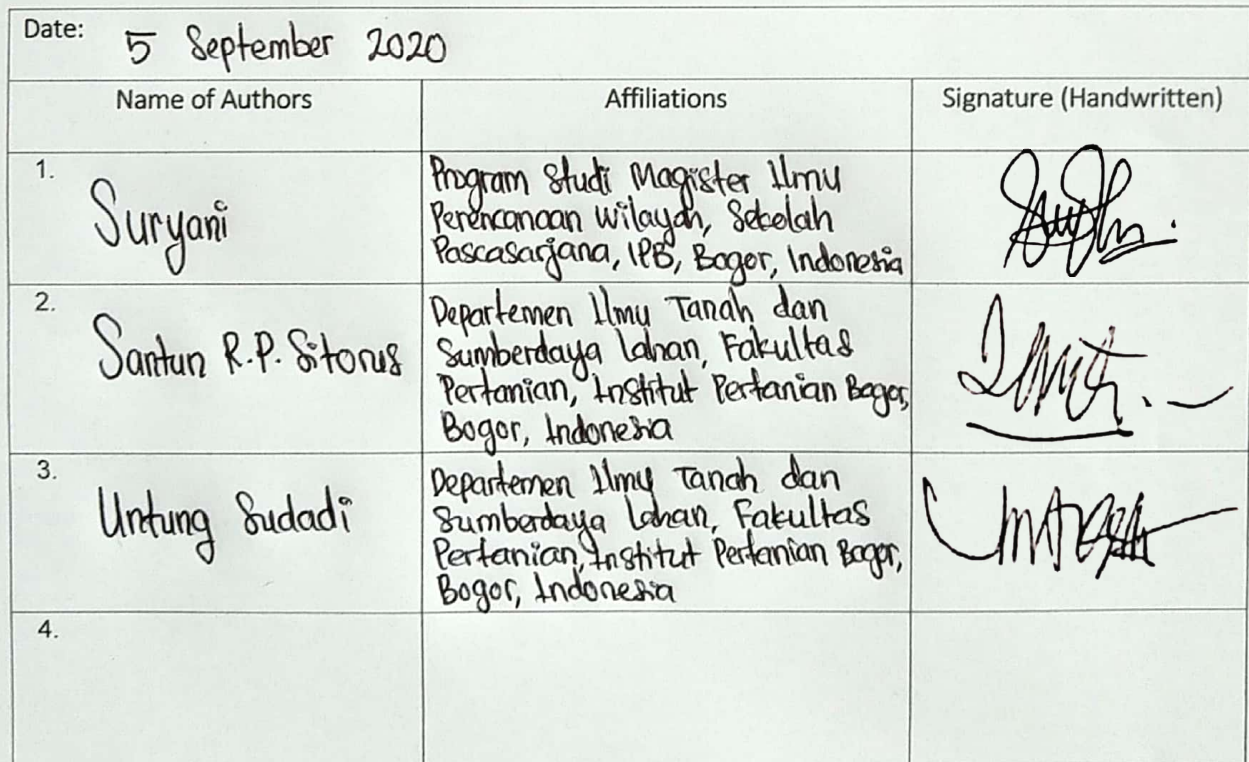 Date: 5 September 2020
Name of Authors Affiliations Signature (Handwritten)
1.
Suryani
Program Studi Magister Ilmu
Perencanaan Wilayah, Sekolah
Pascasarjana, IPB, Bogor, Indonesia
2.
Santun R.P. Sitorus
Departemen Ilmu Tanah dan
Sumberdaya Lahan, Fakultas
Pertanian, Institut Pertanian Bogor,
Bogor, Indonesia
3.
Untung Sudadi
Departemen Ilmu Tanah dan
Sumberdaya Lahan, Fakultas
Pertanian, Institut Pertanian Bogor,
Bogor, Indonesia
4.